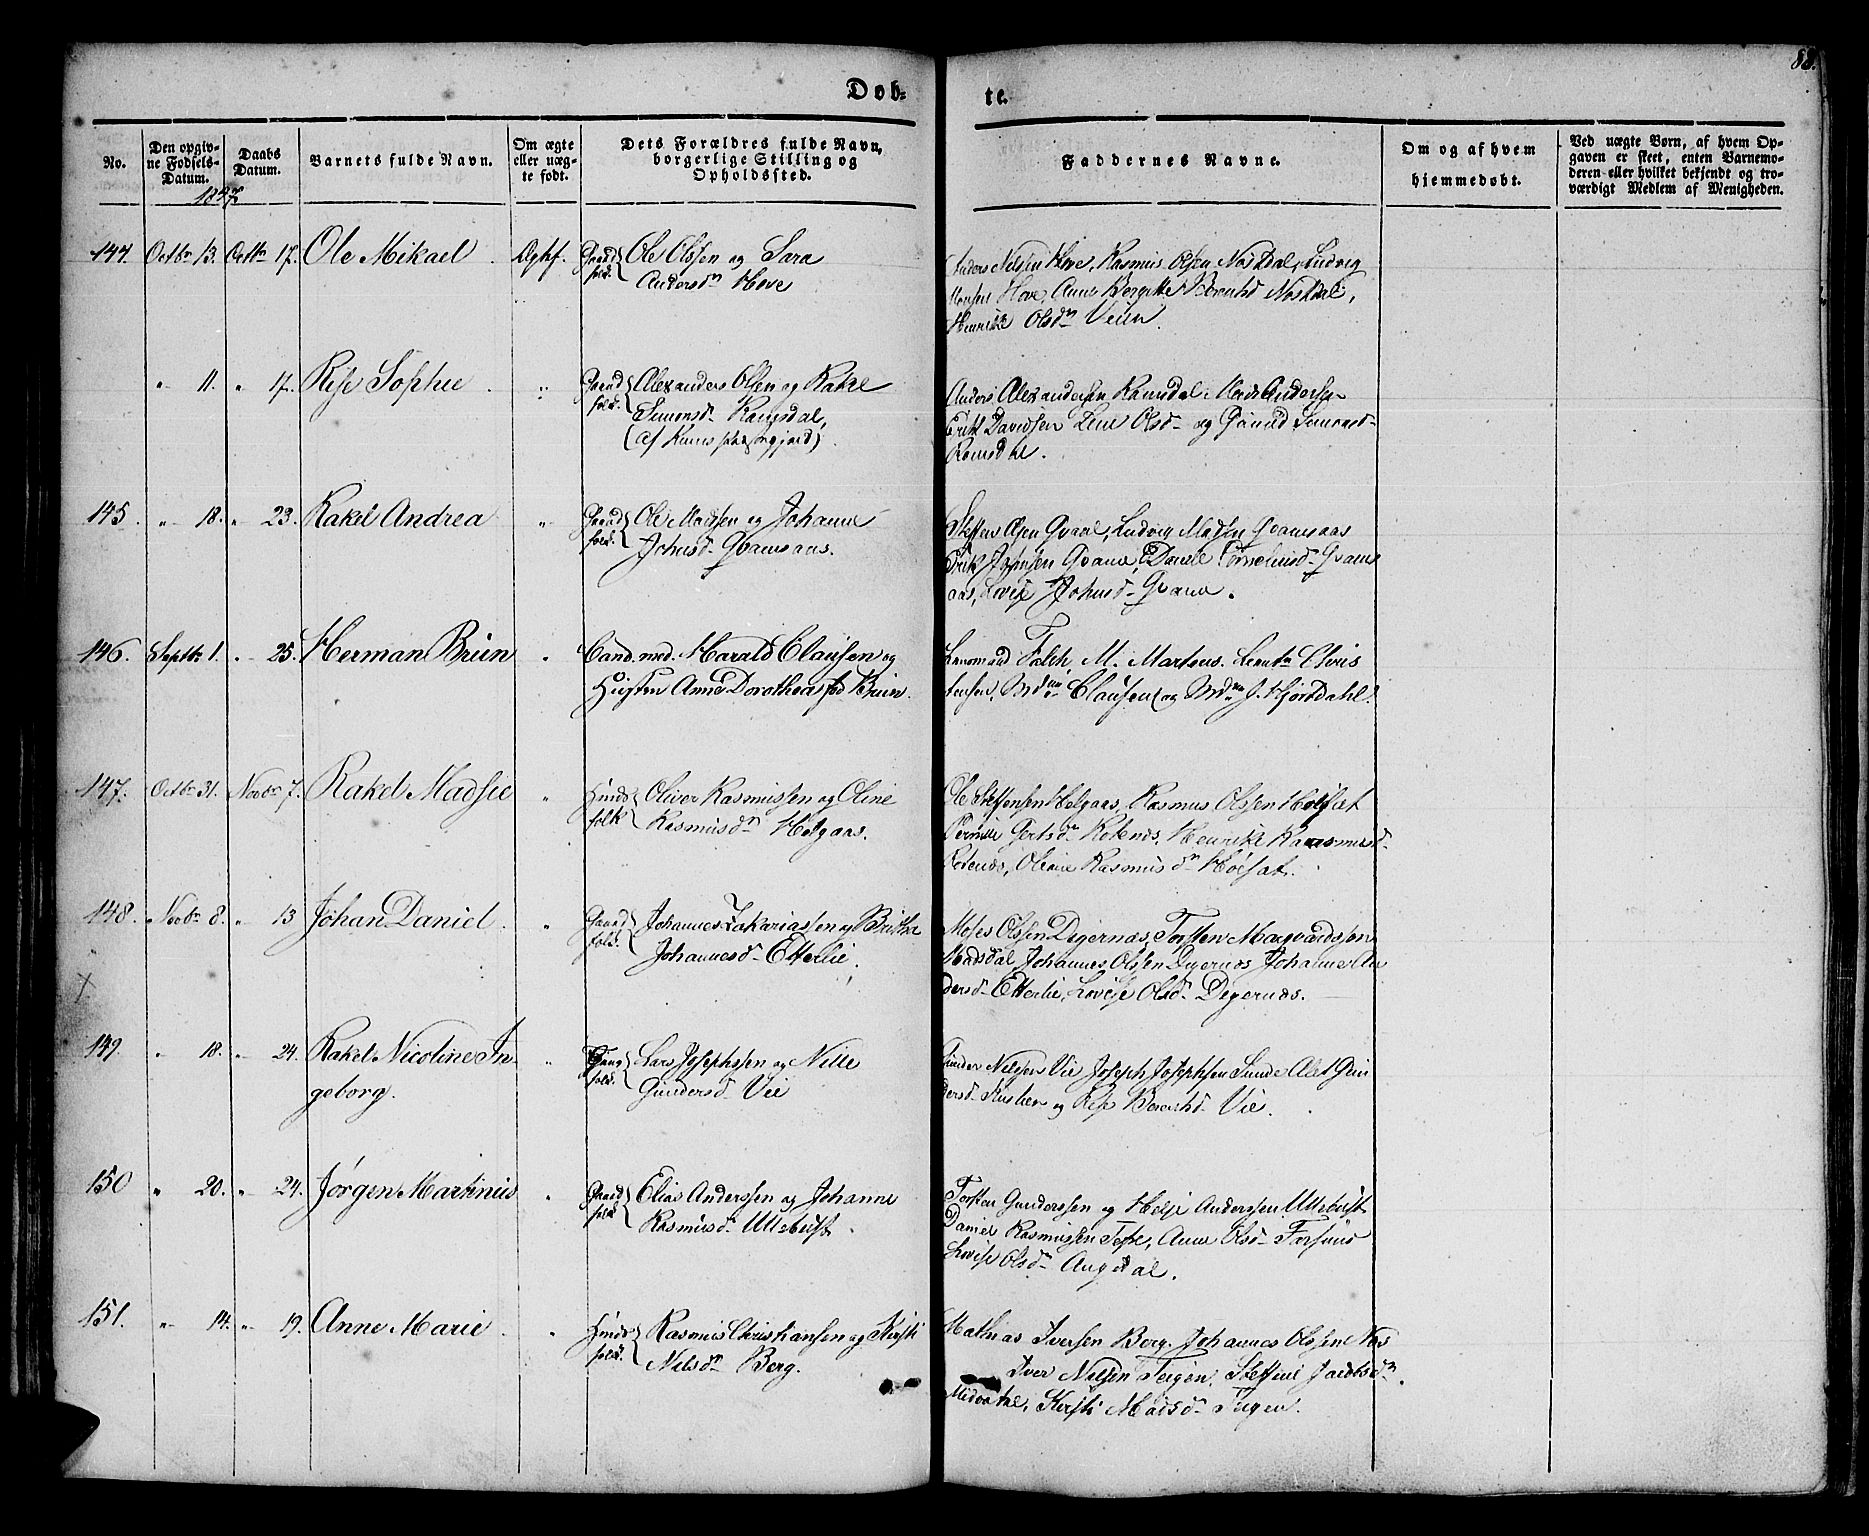 88.
Døb-
te.
No.
Den opgiv-
ne Fødsels-
Datum.
Daabs
Datum.
Barnets fulde Navn.
Om ægte
eller uæg-
te født.
Dets Forældres fulde Navn,
borgerlige Stilling og
Opholdssted.
Faddernes Navne.
Om og af hvem
hjemmedøbt.
Ved uægte Børn, af hvem Op-
gaven er skeet, enten Barnemo-
deren eller hvilket bekjendt og tro-
værdigt Medlem af Menigheden.
1847
144. Octbr 13. Octbr 17. Ole Mikael Ægtef. Gaard
folk. Ole Olssen og Sara
Andersdr Hove
Anders Nilsen Hove, Rasmus Olsen Nosdal, Ludvig
Monsen Hove, Anne Bergitte Berentsd Nosdal,
Henrike Olsdn Veien.
" 11. " 17. Rise Sophie " Gaard
folk. Alexanders Olsen og Rakel
Simonsd- Ramsdal,
Anders Alexandersen Ramsdal, Andersen
Erik Davidsen Lene Olsd- og Simonsd-
Ramsdal.
145. " 18. " 23. Rakel Andrea " Gaard
folk. Ole Madsen og Johanne
Johnsd- Qvamsaas.
Steffen Olsen Qvale, Ludvig Madsen Qvamsaas
Erik Johnsen Qvame, Dorte Corneliusd- Qvams
aas, Lovise Johnsd- Qvame.
146. Septbr 1. " 25. Herman Bruun " Cand. med. Harald Clausen og
Hustru Anne Dorothea fød Bruun.
Lensmand Falch, M. Martens. Lieutn Chris
tensen, Mdme Clausen og Mdme J. Hjorddahl.
147. Octbr 31. Novbr 7. Rakel Madsie " Huus
folk Oliver Rasmussen og Oline
Rasmusdn Helgaas.
Ole Steffensen Helgaas, Rasmus Olssen Holsæt
Pernille Gertsdn Rotenes, Henrike Rasmusd-
Rotenes, Oline Rasmusdn Holsæt.
148. Novbr 8. " 13 Johan Daniel " Gaard
folk. Johannes Zakariassen og Britha
Johannesd- Etterlie.
Moses Olssen Degernæs, Torsten Marqvardssen
Marsdal, Johannes Olssen Degernæs, Johanne An
dersd- Etterlie, Lovise Olsd- Degernæs.
149. " 18. " 24. Rakel Nicoline In-
geborg. " folk. Lars Josephssen og Nille
Gundersd- Vie
Gunder Nilssen Vie, Joseph Josephsen Sunde, Alet Gun
dersd- og Rise Berentsd- Vie.
150 " 20. " 24. Jørgen Martinus " Gaard
folk Elias Anderssen og Johanne
Rasmusd- Uttebust.
Torsten Gunderssen og Helge Anderssen Uttebust
Daniel Rasmussen Tefre, Anne Olsd- Forsund
Lovise Olsd- Angedal.
151. " 14. " 19. Anne Marie " Huus
folk. Rasmus Christiansen og Kirsti
Nilsdn Berg.
Mathias Iversen Berg, Johannes Olssen Næs
Iver Nilsen Teigen, Steffine Jacobsdn
Kirsti Madsd- Teigen.